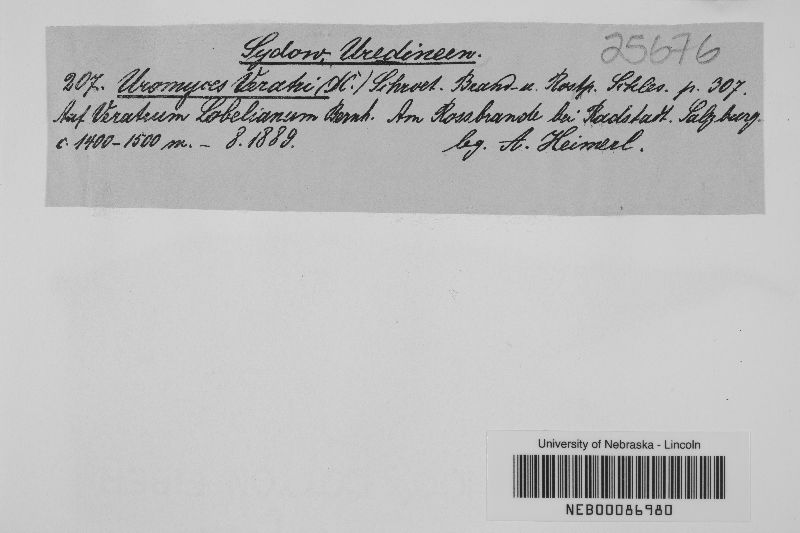 Sydow, Uredineen.
25676
207. Uromyces Veratri (DC.) Schroet. Brand- u. Rostp. Schles. p. 307.
Auf Veratrum Lobelianum Bernh. Am Rossbrande bei Radstadt. Salzburg.
c. 1400-1500 m. - 8.1889. leg. A. Heimerl.
University of Nebraska - Lincoln
NEB00086980